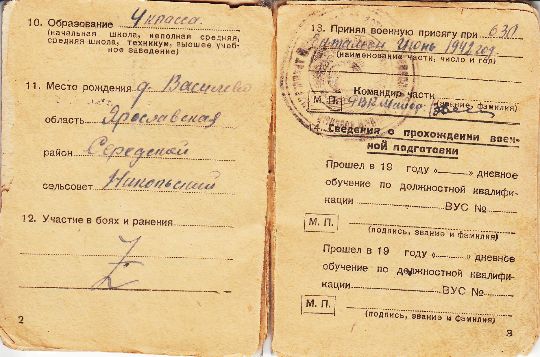 10. Образование 4 класса.
(начальная школа, неполная средняя,
средняя школа, техникум, высшее учеб-
ное заведение)
11. Место рождения д. Василево
область Ярославская
район Середской
сельсовет Никольский
12. Участие в боях и ранения
Z
2
13. Принял военную присягу при 63 П.
июнь 1942 год
(наименование части, число и год)
Командир части
М. П.
(звание, фамилия)
Сведения о прохождении воен-
ной подготовки
Прошел в 19 году «——» дневное
обучение по должностной квалифи-
кации ВУС №
М. П.
(подпись, звание и фамилия)
Прошел в 19 году «——» дневное
обучение по должностной квалифи-
кации ВУС №
М. П.
(подпись, звание и фамилия)
3